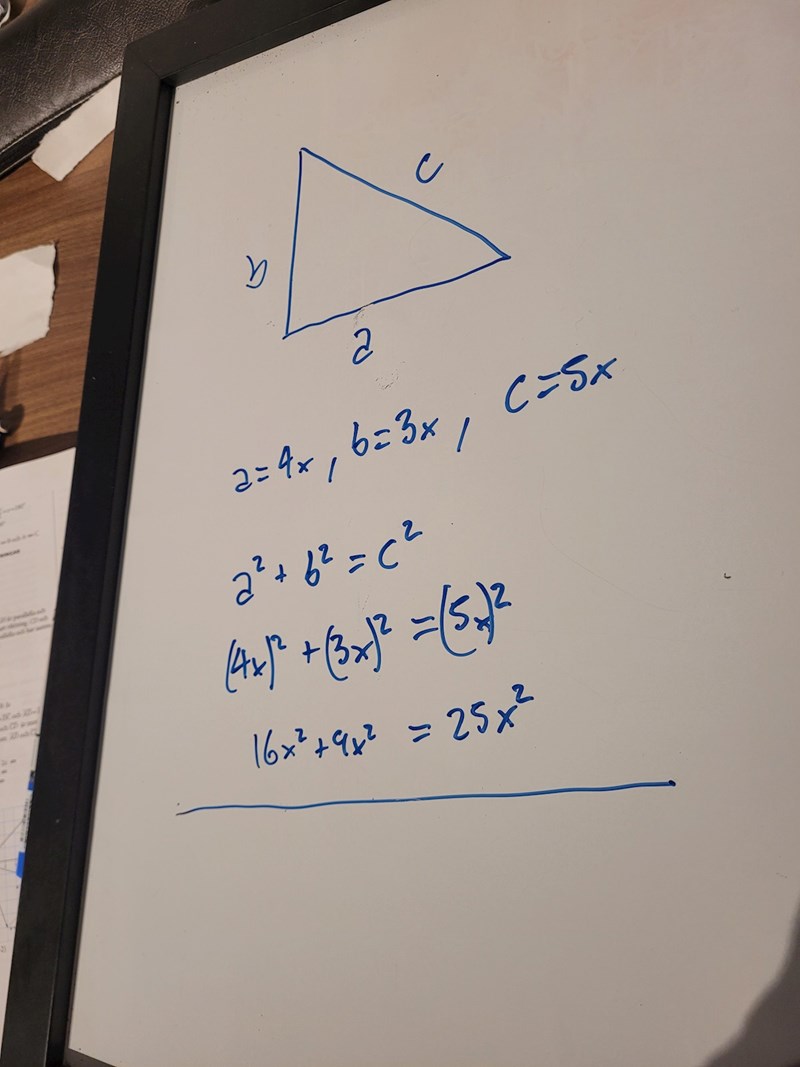 c
b
a
a=4x, b=3x, c=5x
a² + b² = c²
(4x)² + (3x)² = (5x)²
16x² + 9x² = 25x²